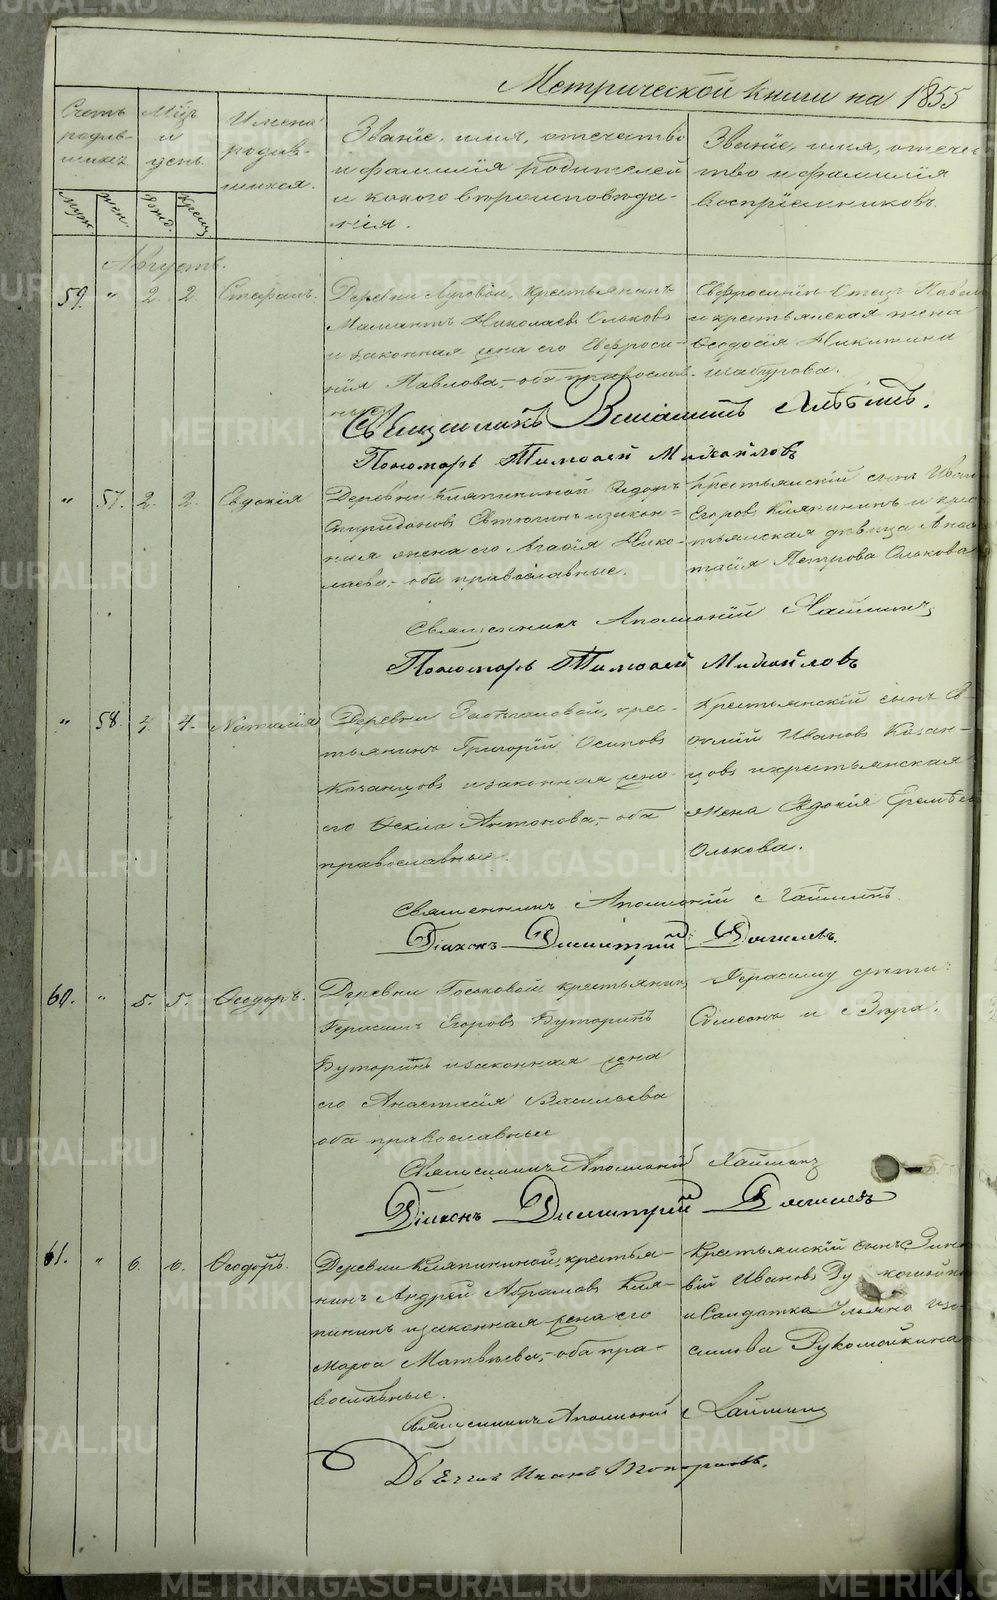 METRIKI.GASO-URAL.RU
Метрической книги на 1855
Счетъ родив- шихся
Мцъ и день
Имена родив- шихся.
Званіе, имя, отечество
и фамилія родителей
и какого вѣроисповѣда-
нія.
Званіе, имя, отечес-
тво и фамилія
воспріемниковъ.
муж. жен. рожд. крещ.
Августъ.
59. " 2. 2. Стефанъ.
Деревни Луговой, крестьянинъ
Мамантъ Николаевъ Ольковъ
и законная жена его Евфроси-
нія Павлова, - оба православ-
ные.
Евфросиніи Отецъ Павелъ
и крестьянская жена
Ѳеодосія Никитина
Священникъ Веніаминъ
Пономарь Тимоѳей Михайловъ
" 57. 2. 2. Евдокія
Деревни Кляпининой Сидоръ
Спиридоновъ и закон=
ная жена его Агаѳія Нико-
лаева, - оба православные.
Крестьянскій сынъ Иванъ
Егоровъ Кляпининъ и крес-
тьянская дѣвица Анас-
тасія Петрова Олькова
Священникъ Аполлоній
Пономарь Тимоѳей Михайловъ
" 58. 4. 4. Наталія
Деревни крес-
тьянинъ Григорій Осиповъ
Казанцовъ и законная жена
его Ѳекла Антонова, - оба
православные.
Крестьянскій сынъ
Ивановъ Казан-
цовъ и крестьянская
жена Евдокія
Олькова.
Священникъ Аполлоній
Діаконъ Димитрій
60. " 5. 5. Ѳеодоръ.
Деревни крестьянинъ
Герасимъ Егоровъ Буторинъ
Буторинъ и законная жена
его Анастасія Васильева
оба православные
Герасиму дѣти:
Симеонъ и
Священникъ Аполлоній
Діаконъ Димитрій
61. " 6. 6. Ѳеодоръ.
Деревни Кляпининой, крестья-
нинъ Андрей Абрамовъ Кля-
пининъ и законная жена его
Марѳа Матвѣева, - оба пра-
вославные.
Крестьянскій сынъ Зино-
вій Ивановъ
и Солдатка Ульяна Изо-
симова Рукомойкина
Священникъ Аполлоній
Дьячокъ Иванъ